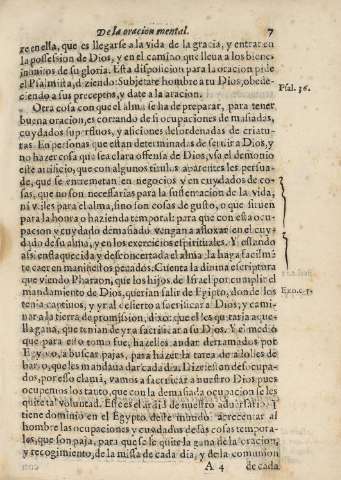 De la oracion mental. 7
re en ella, que es llegarse a la vida de la gracia, y entrar en
la possession de Dios, y en el camino que lleua a los bienes
infinitos de su gloria. Esta disposicion para la oracion pide
el Psalmista, diziendo: Subjetate hombre a tu Dios, obede-
ciendo a sus preceptos, y date a la oracion.
Psal. 36.
Otra cosa con que el alma se ha de preparar, para tener
buena oracion, es cortando de si ocupaciones demasiadas,
cuydados superfluos, y aficiones desordenadas de criatu-
ras. En personas que estan determinadas de seruir a Dios, y
no hazer cosa que sea clara offensa de Dios, vsa el demonio
este artificio, que con algunos titulos aparentes les persua-
de, que se entremetan en negocios y en cuydados de co-
sas, que no son necessarias para la sustentacion de la vida,
ni vtiles para el alma, sino son cosas de gusto, o que siruen
para la honra o hazienda temporal: para que con esta ocu-
pacion y cuydado demasiado vengan a afloxar en el cuy-
dado de su alma, y en los exercicios espirituales. Y estando
assi enflaquecida y desconcertada el alma, la haya facilmẽ
te caer en manifiestos pecados. Cuenta la diuina escriptura
que viendo Pharaon, que los hijos de Israel por cumplir el
mandamiento de Dios, querian salir de Egipto, donde los
Exo. c. 5.
tenia captiuos, y yr al desierto a sacrificar a Dios, y cami-
nar a la tierra de promission, dixo: que el les quitaria aque-
lla gana, que tenian de yr a sacrificar a su Dios. Y el medio
que para esto tomo fue, hazelles andar derramados por
Egypto, a buscar pajas, para hazer la tarea de adobes de
barro, que les mandaua dar cada dia. Dize
pados, por esso clamã, vamos a sacrificar a nuestro Dios pues
ocupemos los tanto, que con la demasiada ocupacion se les
quite tal voluntad. Este es el ardid de nuestro aduersario,
tiene dominio en el Egypto deste mundo acrecentar al
hombre las ocupaciones y cuydados de las cosas tempora-
les, que son paja, para que se le quite la gana de la oracion,
y recogimiento, de la missa de cada dia, y de la comunion
A 4 de cada